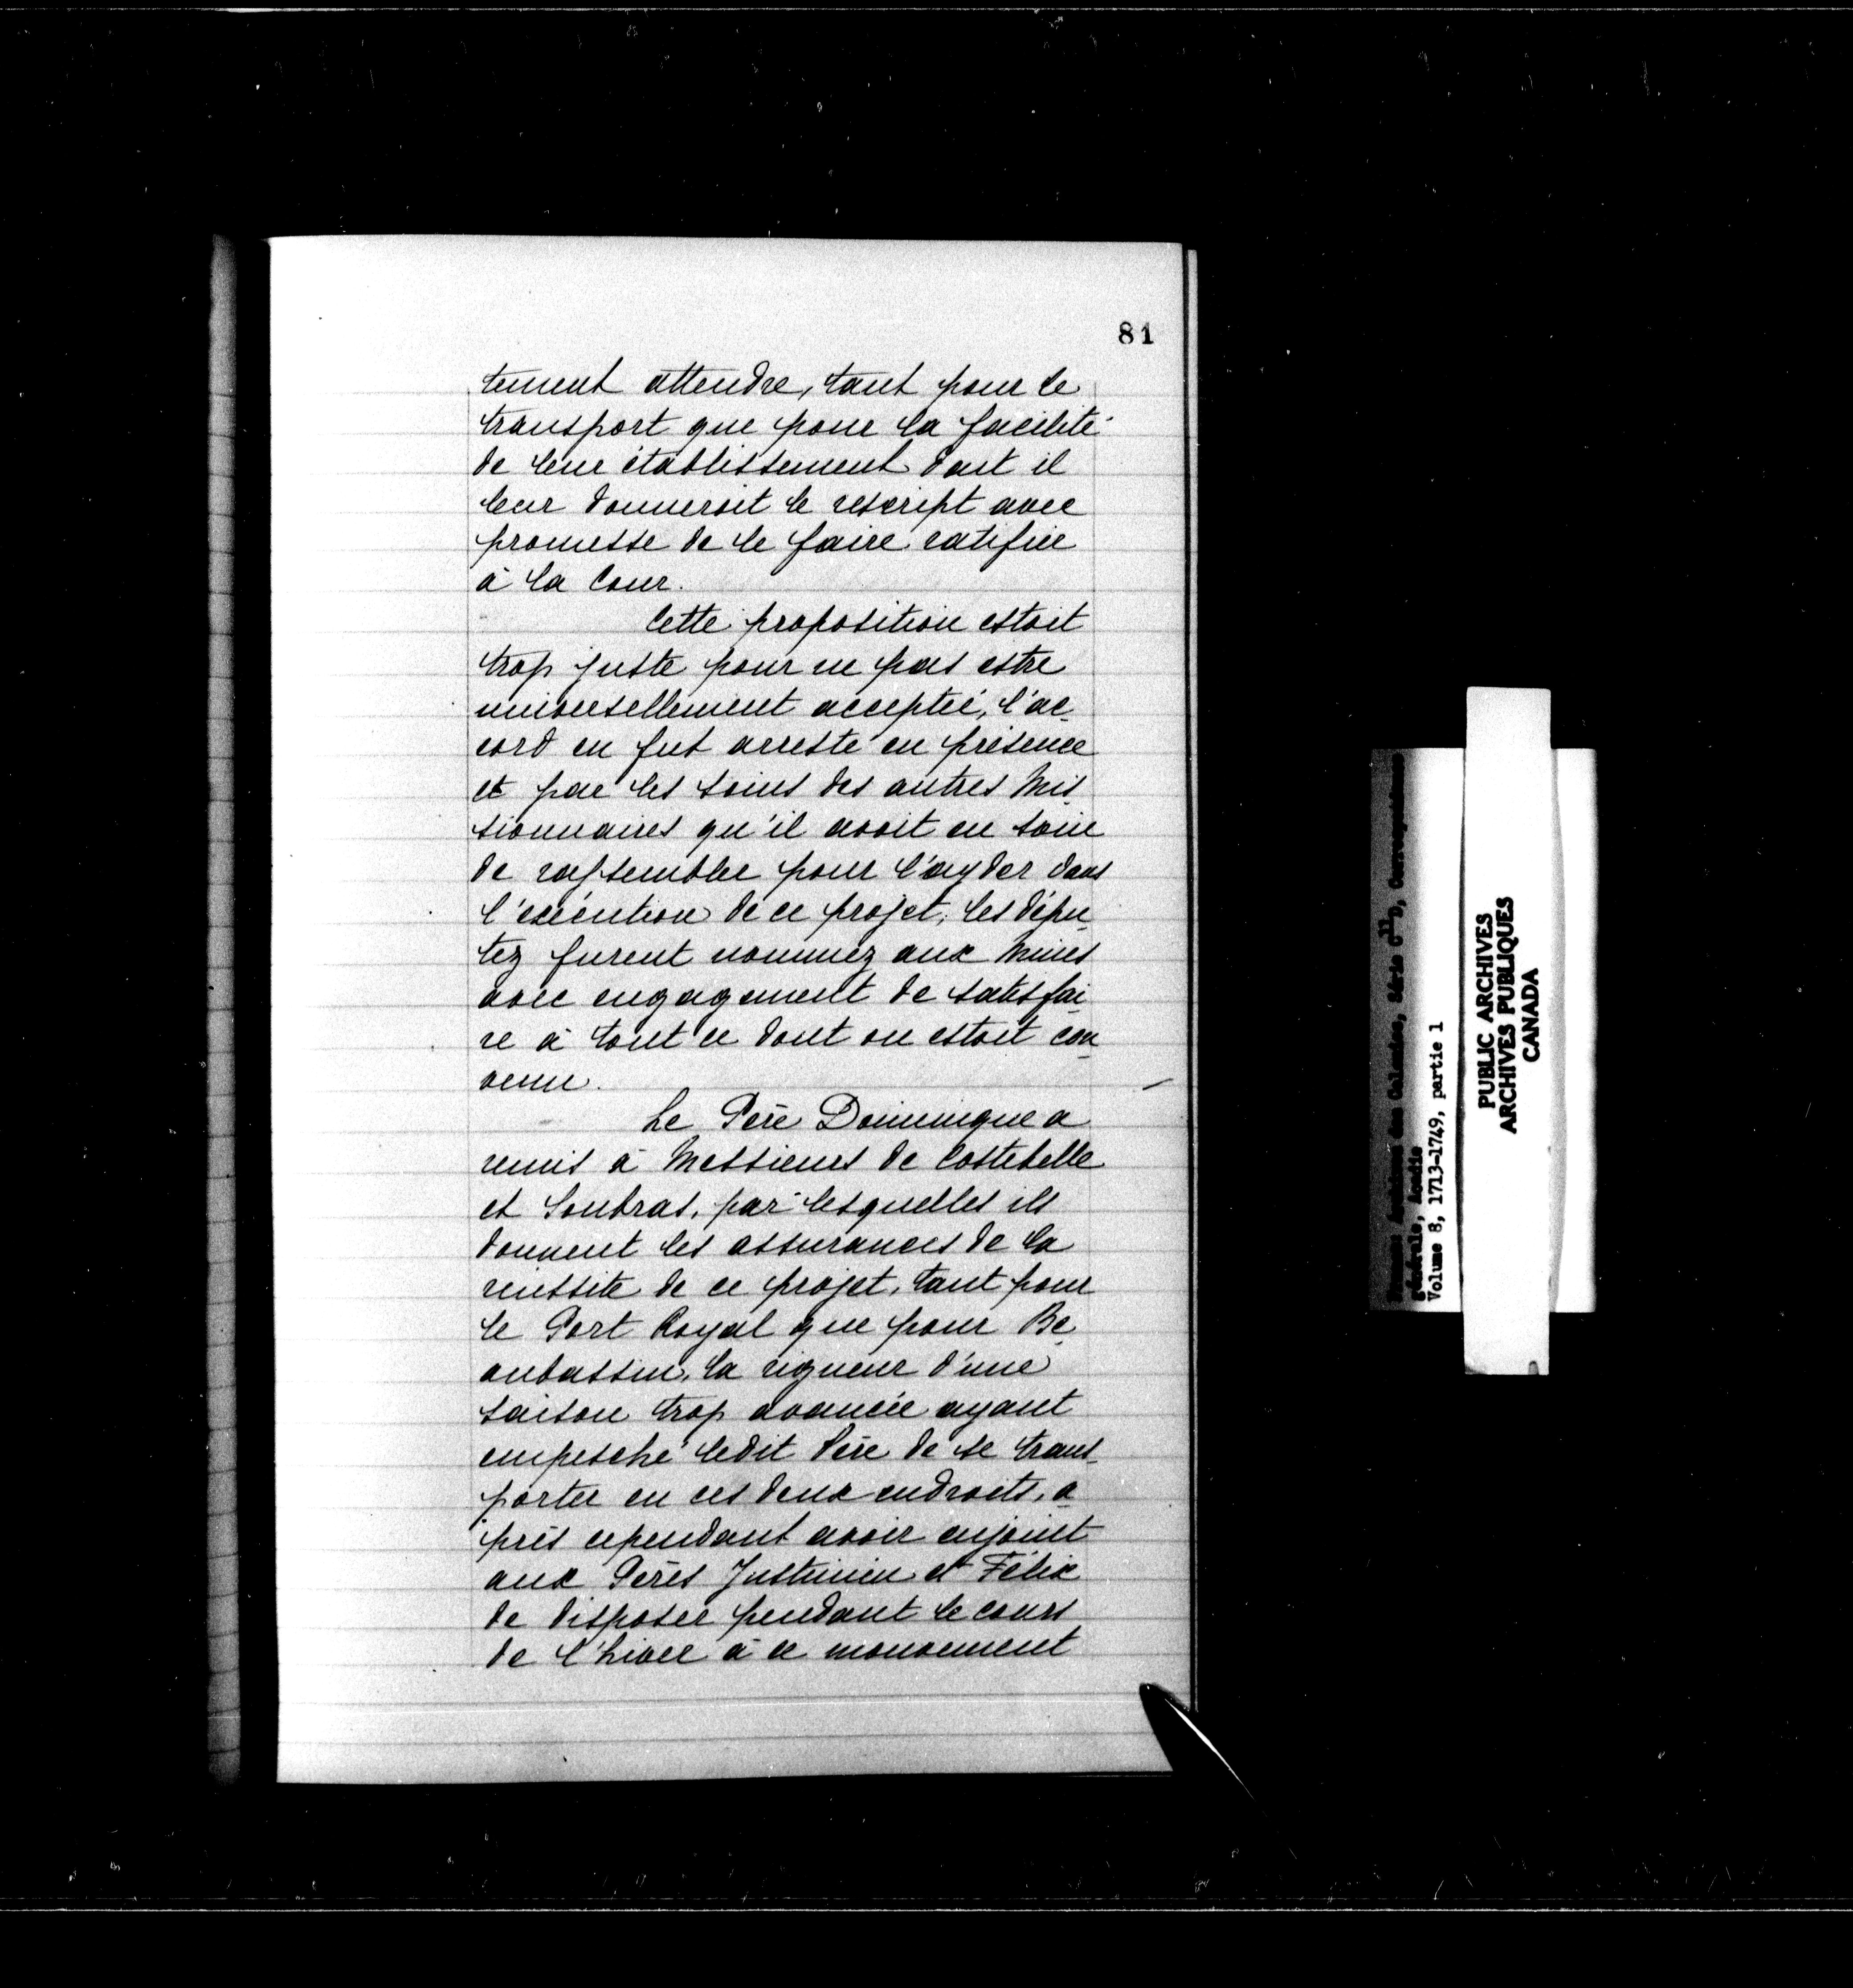 81
tement attendre, tant pour le
transport que pour la facilité
de leur établissement dont il
leur donneroit le rescript avec
promesse de le faire ratifier
à la Cour.
Cette proposition estoit
trop juste pour ne pas estre
universellement acceptée, l'ac-
cord en fut arresté en présence
et par les soins des autres Mis-
sionnaires qu'il avoit eu soin
de rassembler pour l'ayder dans
l'exécution de ce projet, les dépu-
tez furent nommez aux Mines
avec engagement de satisfai-
re à tout ce dont on estoit con-
venu.
Le Père Dominique a
remis à Messieurs de Costebelle
et Soubras, par lesquelles ils
donnent les assurances de la
réussite de ce projet, tant pour
le Port Royal que pour Be-
aubassin, la rigueur d'une
saison trop avancée ayant
empesché ledit Père de se trans-
porter en ces deux endroits, a-
près cependant avoir enjoint
aux Pères Justinien et Félix
de disposer pendant le cours
de l'hiver à ce mouvement
générale, Acadie
Volume 8, 1713-1749, partie 1
PUBLIC ARCHIVES
ARCHIVES PUBLIQUES
CANADA